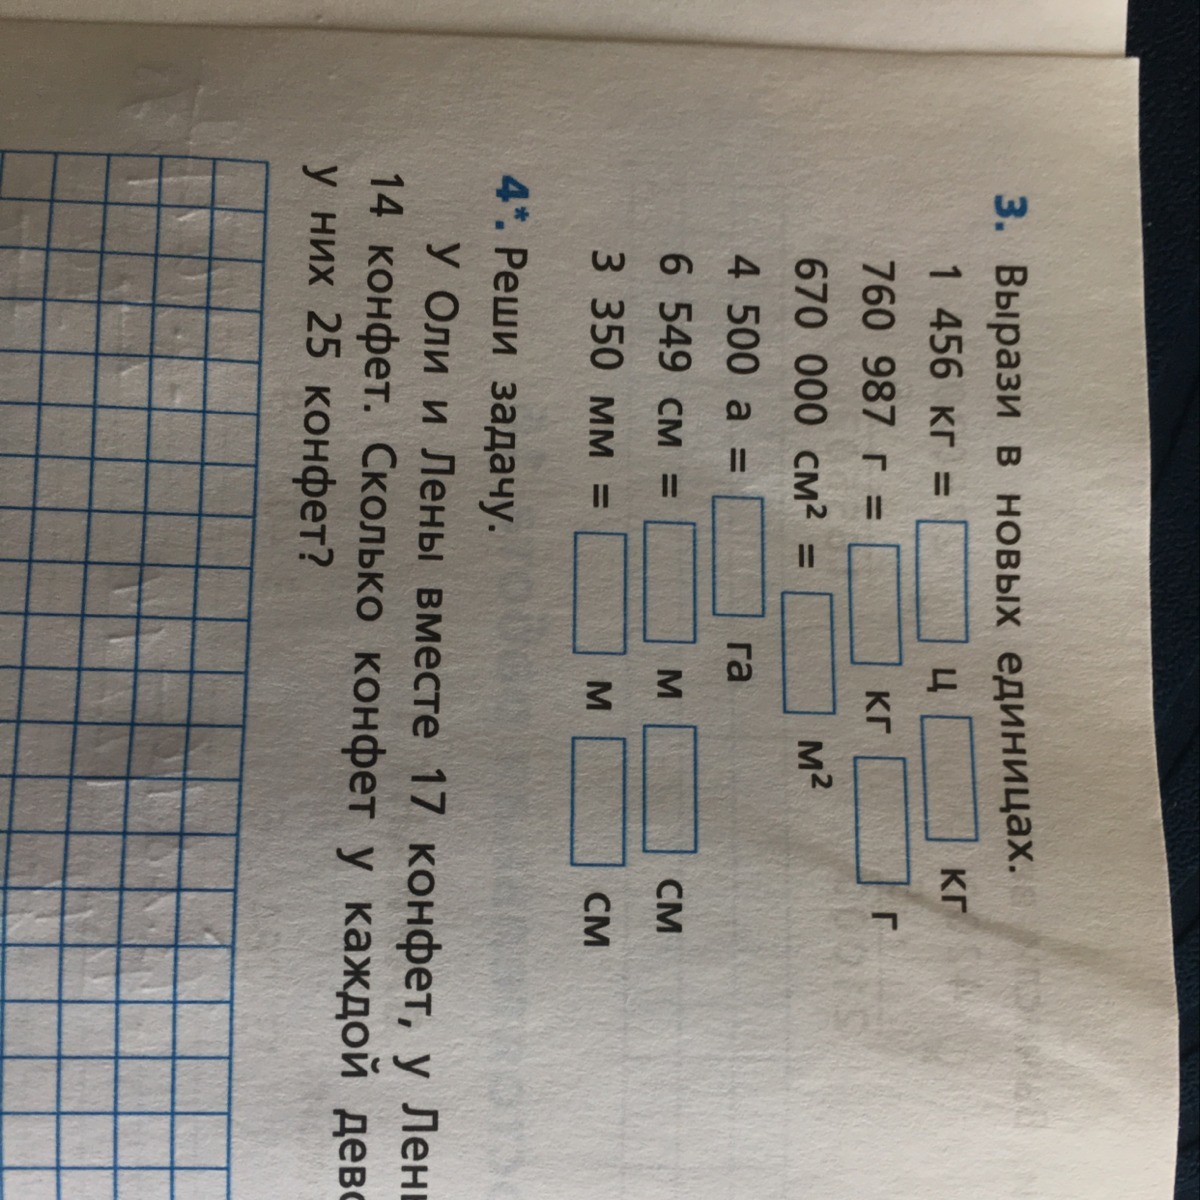 3. Вырази в новых единицах.
1 456 кг = ц кг
760 987 г = кг г
670 000 см² = м²
4 500 а = га
6 549 см = м см
3 350 мм = м см
4*. Реши задачу.
У Оли и Лены вместе 17 конфет, у
14 конфет. Сколько конфет у каждой
у них 25 конфет?